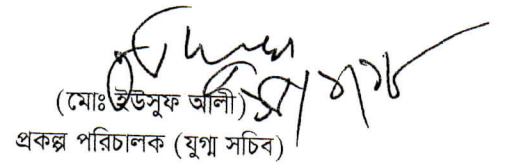 (মোঃ ইউসুফ আলী)
প্রকল্প পরিচালক (যুগ্ম সচিব)